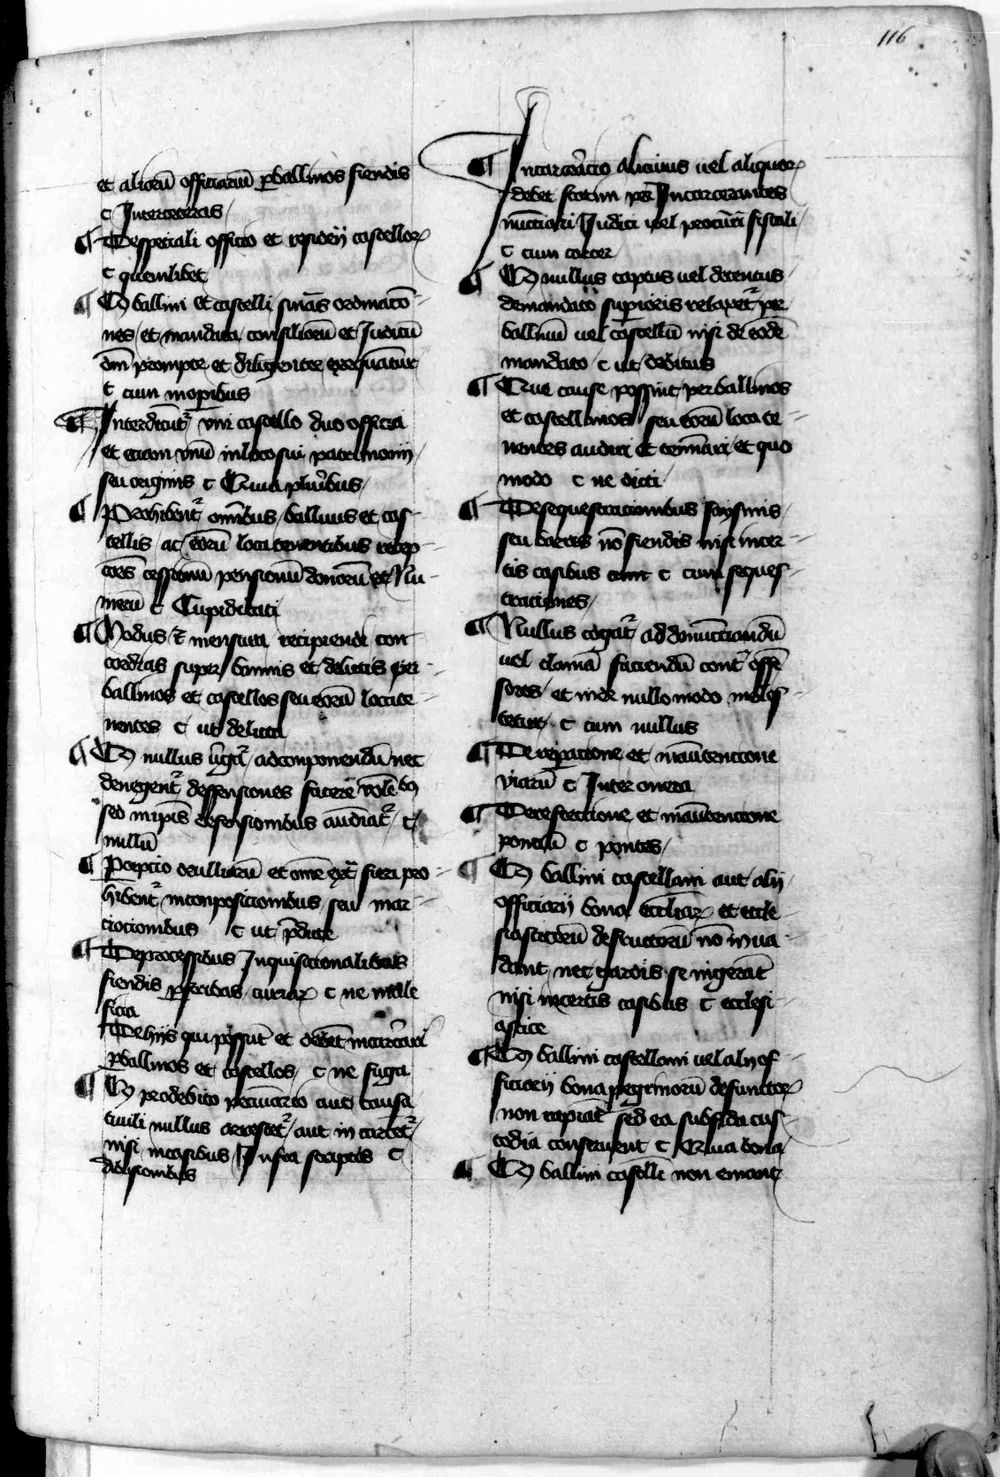 116
et alioru officiariu p ballivos fiendis
c Interceteras
¶ De speciali officio et residecii castellor
c quemlibet
¶ Q ballivi et castelli snias ordinacio
nes et mandata consilioru et Judicu
dni prompte et diligenter exequatur
c cum inopibus
¶ Interdicutr vni castello duo officia
et eciam vnu in loco sui patrimonij
seu originis c Quia pluribus
¶ Prohibentr omibus ballivis et cas
tellis ac eoru loca tenentibus recep
cionem cessionu pensionu donoru et Nu
meru c Cupiditati
¶ Modus et mensura recipiendi con
cordias super bannis et delictis per
ballivos et castellos seu eoru locate
nentes c ut delicta
¶ Q nullus cogatr ad conponendu nec
denegentr deffensiones facere volentibus
sed in ipsis defensionibus audiatr c
nullu
¶ Pceptio ocultaru et ome fieri pro
hibentr in conposicionibus seu mar
ciacionibus c ut pdicte
¶ De processibus Inquisicionalibus
fiendis p scribas curiar c ne male
ficia
De hiis qui possut et debet incarcerari
p ballivos et castellos c ne fuga
¶ Q pro debito pecuniario aut causa
civili nullus arrestetr aut incarcetr
nisi in casibus Infra scriptis c
Abusionibus
¶ Incarceracio alicuius vel aliquor
debet statim per Incarcerantes
nunciari Judici vel procuri fiscali
c cum carcer
¶ Q nullus captus vel detentus
de mandato supioris relaxetr per
ballivu vel castellu nisi de eode
mandato c ut debitus
¶ Que cause possint per ballivos
et castellanos seu eoru loca te
nentes audiri et terminari et quo
modo c ne dicti
¶ De sequestracionibus saysinis
seu bannis no fiendis nisi incer
tis casibus cum c cum seques
traciones
¶ Nullus cogatr ad denunciandu
vel clama faciendu contr offen
sores et inde nullo modo moles
tetur c cum nullus
¶ De repacione et manutencione
viaru c Inter onera
¶ De refectione et manutencione
pontiu c pontes
¶ Q ballivi castellani aut alij
officiarij bona ecclesiar et eccle
siasticoru defunctoru no inva
dant nec gardis se ingerant
nisi in certis casibus c ecclesi
astice
¶ Q ballivi castellani vel alij of
ficiarij bona pegrinoru defunctor
non capiatr sed ea sub fida cus
todia conservent c Quia bona
¶ Q ballivi castelli non emant